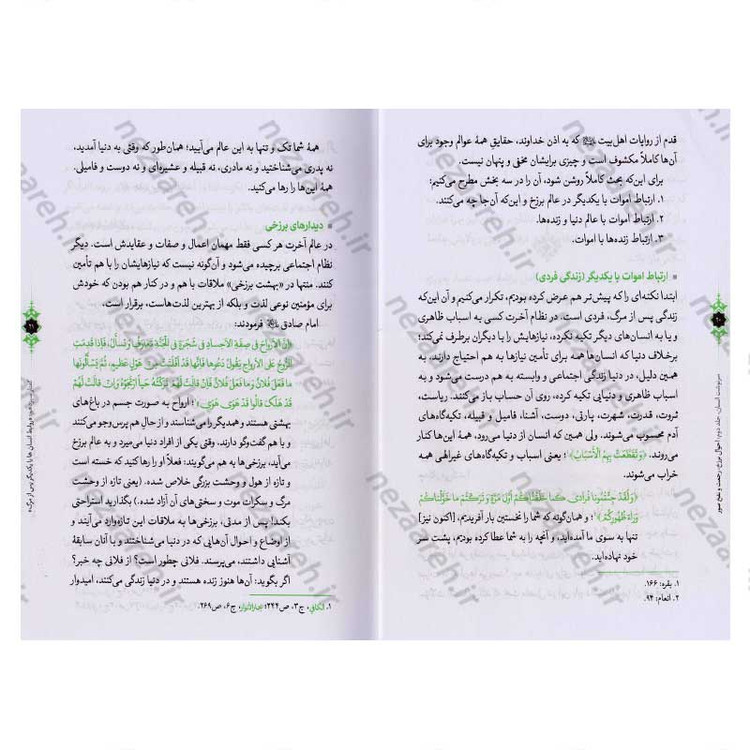 قدم از روایات اهل‌بیت که به اذن خداوند، حقایق همهٔ عوالم وجود برای
آن‌ها کاملاً مکشوف است و چیزی برایشان مخفی و پنهان نیست.
برای این‌که بحث کاملاً روشن شود، آن را در سه بخش مطرح می‌کنیم:
۱. ارتباط اموات با یکدیگر در عالم برزخ و این‌که آن‌جا چه می‌کنند.
۲. ارتباط اموات با عالم دنیا و زنده‌ها.
۳. ارتباط زنده‌ها با اموات.
ارتباط اموات با یکدیگر (زندگی فردی)
ابتدا نکته‌ای را که پیش‌تر هم عرض کرده بودیم، تکرار می‌کنیم و آن این‌که
زندگی پس از مرگ، فردی است. در نظام آخرت کسی به اسباب ظاهری
و یا به انسان‌های دیگر تکیه نکرده، نیازهایش را با دیگران برطرف نمی‌کند؛
برخلاف دنیا که انسان‌ها همه برای تأمین نیازها به هم احتیاج دارند. به
همین دلیل، در دنیا زندگی اجتماعی و وابسته به هم درست می‌شود و به
اسباب ظاهری و دنیایی تکیه کرده، روی آن حساب باز می‌کنند. ریاست،
ثروت، قدرت، شهرت، پارتی، دوست، آشنا، فامیل و قبیله، تکیه‌گاه‌های
آدم محسوب می‌شوند. ولی همین که انسان از دنیا می‌رود، همهٔ این‌ها کنار
می‌روند. ﴿وَتَقَطَّعَتْ بِهِمُ الْأَسْبَابُ﴾۱؛ یعنی اسباب و تکیه‌گاه‌های غیرالهی همه
خراب می‌شوند.
﴿وَلَقَدْ جِئْتُمُونَا فُرَادَىٰ كَمَا خَلَقْنَاكُمْ أَوَّلَ مَرَّةٍ وَتَرَكْتُمْ مَا خَوَّلْنَاكُمْ
وَرَاءَ ظُهُورِكُمْ﴾۲؛ و همان‌گونه که شما را نخستین بار آفریدیم، [اکنون نیز]
تنها به سوی ما آمده‌اید، و آنچه را به شما عطا کرده بودیم، پشت سر
خود نهاده‌اید.
۱. بقره: ۱۶۶.
۲. انعام: ۹۴.
همهٔ شما تک و تنها به این عالم می‌آیید؛ همان‌طور که وقتی به دنیا آمدید،
نه پدری می‌شناختید و نه مادری، نه قبیله و عشیره‌ای و نه دوست و فامیلی.
همهٔ این‌ها را رها می‌کنید.
دیدارهای برزخی
در عالم آخرت هر کسی فقط مهمان اعمال و صفات و عقایدش است. دیگر
نظام اجتماعی برچیده می‌شود و آن‌گونه نیست که نیازهایشان را با هم تأمین
کنند. منتها در «بهشت برزخی» ملاقات با هم و در کنار هم بودن که خودش
برای مؤمنین نوعی لذت و بلکه از بهترین لذت‌هاست، برقرار است.
امام صادق فرمودند:
إِنَّ الْأَرْوَاحَ فِي صِفَةِ الْأَجْسَادِ فِي شَجَرَةٍ فِي الْجَنَّةِ تَعَارَفُ وَتَسَاءَلُ، فَإِذَا قَدِمَتِ
الرُّوحُ عَلَى الْأَرْوَاحِ يَقُولُ دَعُوهَا فَإِنَّهَا قَدْ أَفْلَتَتْ مِنْ هَوْلٍ عَظِيمٍ، ثُمَّ يَسْأَلُونَهَا
مَا فَعَلَ فُلَانٌ وَمَا فَعَلَ فُلَانٌ فَإِنْ قَالَتْ لَهُمْ تَرَكْتُهُ حَيّاً ارْتَجَوْهُ وَإِنْ قَالَتْ لَهُمْ
قَدْ هَلَكَ قَالُوا قَدْ هَوَى، هَوَى؛۱ ارواح به صورت جسم در باغ‌های
بهشتی هستند و همدیگر را می‌شناسند و از حال هم پرس‌وجو می‌کنند
و با هم گفت‌وگو دارند. وقتی یکی از افراد دنیا می‌میرد و به عالم برزخ
می‌آید، برزخی‌ها به هم می‌گویند: فعلاً او را رها کنید که خسته است
و تازه از هول و وحشت بزرگی خلاص شده. (یعنی تازه از وحشت
مرگ و سکرات موت و سختی‌های آن آزاد شده.) بگذارید استراحتی
بکند! پس از مدتی، برزخی‌ها به ملاقات این تازه‌وارد می‌آیند و
از اوضاع و احوال آن‌هایی که در دنیا می‌شناختند و با آنان سابقهٔ
آشنایی داشتند، می‌پرسند. فلانی چطور است؟ از فلانی چه خبر؟
اگر بگوید: آن‌ها هنوز زنده هستند و در دنیا زندگی می‌کنند، امیدوار
۱. الکافی، ج۳، ص۲۴۴؛ بحارالأنوار، ج۶، ص۲۶۹.
nezaareh.ir